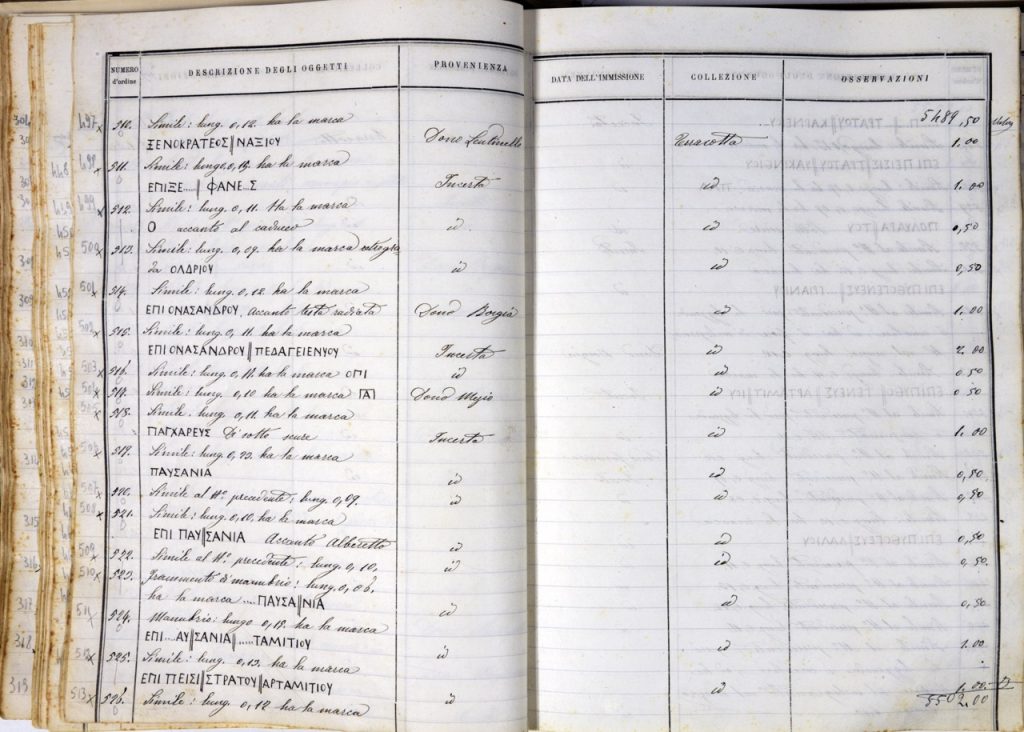 NUMERO d'ordine DESCRIZIONE DEGLI OGGETTI PROVENIENZA DATA DELL'IMMISSIONE COLLEZIONE OSSERVAZIONI
5489,50
510. Simile: lung. 0,12. ha la marca
ΞΕΝΟΚΡΑΤΕΟΣ ΝΑΞΙΟΥ Dono Lentinello Terracotta 1.00
511. Simile: lung. 0,12. ha la marca
ΕΠΙΞΕ.... ΦΑΝΕ.Σ Incerta id 1.00
512. Simile: lung. 0, 11. Ha la marca
Ο accanto al caduceo id id 0,50
513. Simile: lung. 0,09. ha la marca
da ΟΛΔΡΙΟΥ id id 0,50
514. Simile: lung. 0,12. ha la marca
ΕΠΙ ΟΝΑΣΑΝΔΡΟΥ. Accanto testa radiata Dono Borgia id 1.00
515. Simile: lung. 0, 11. ha la marca
ΕΠΙ ΟΝΑΣΑΝΔΡΟΥ ΠΕΔΑΓΕΙΕΝΥΟΥ Incerta id 2.00
516. Simile: lung. 0, 11. ha la marca ΟΠΙ id id 0 50
517. Simile: lung. 0, 10 ha la marca Dono id 0 50
518. Simile. lung. 0, 11. ha la marca
ΠΑΓΧΑΡΕΥΣ Di sotto scure Incerta id 1.00
519. Simile: lung. 0, 23. ha la marca
ΠΑΥΣΑΝΙΑ id id 0,50
520. Simile al N.° precedente: lung. 0,09. id id 0,50
521. Simile: lung. 0,10. ha la marca
ΕΠΙ ΠΑΥΣΑΝΙΑ Accanto Alberetto id id 0,50
522. Simile al N.° precedente: lung. 0, 10. id id 0,50.
523. Frammento di manubrio: lung. 0, 06.
ha la marca ....ΠΑΥΣΑΝΙΑ id id 0,50
524. Manubrio: lungo 0,12. ha la marca
ΕΠΙ....ΑΥΣΑΝΙΑ .....ΤΑΜΙΤΙΟΥ id id 1.00
525. Simile: lung. 0, 13. ha la marca
ΕΠΙ ΠΕΙΣΙΣΤΡΑΤΟΥ ΑΡΤΑΜΙΤΙΟΥ id id 1.00
526. Simile: lung. 0, 12 ha la marca 5502.00